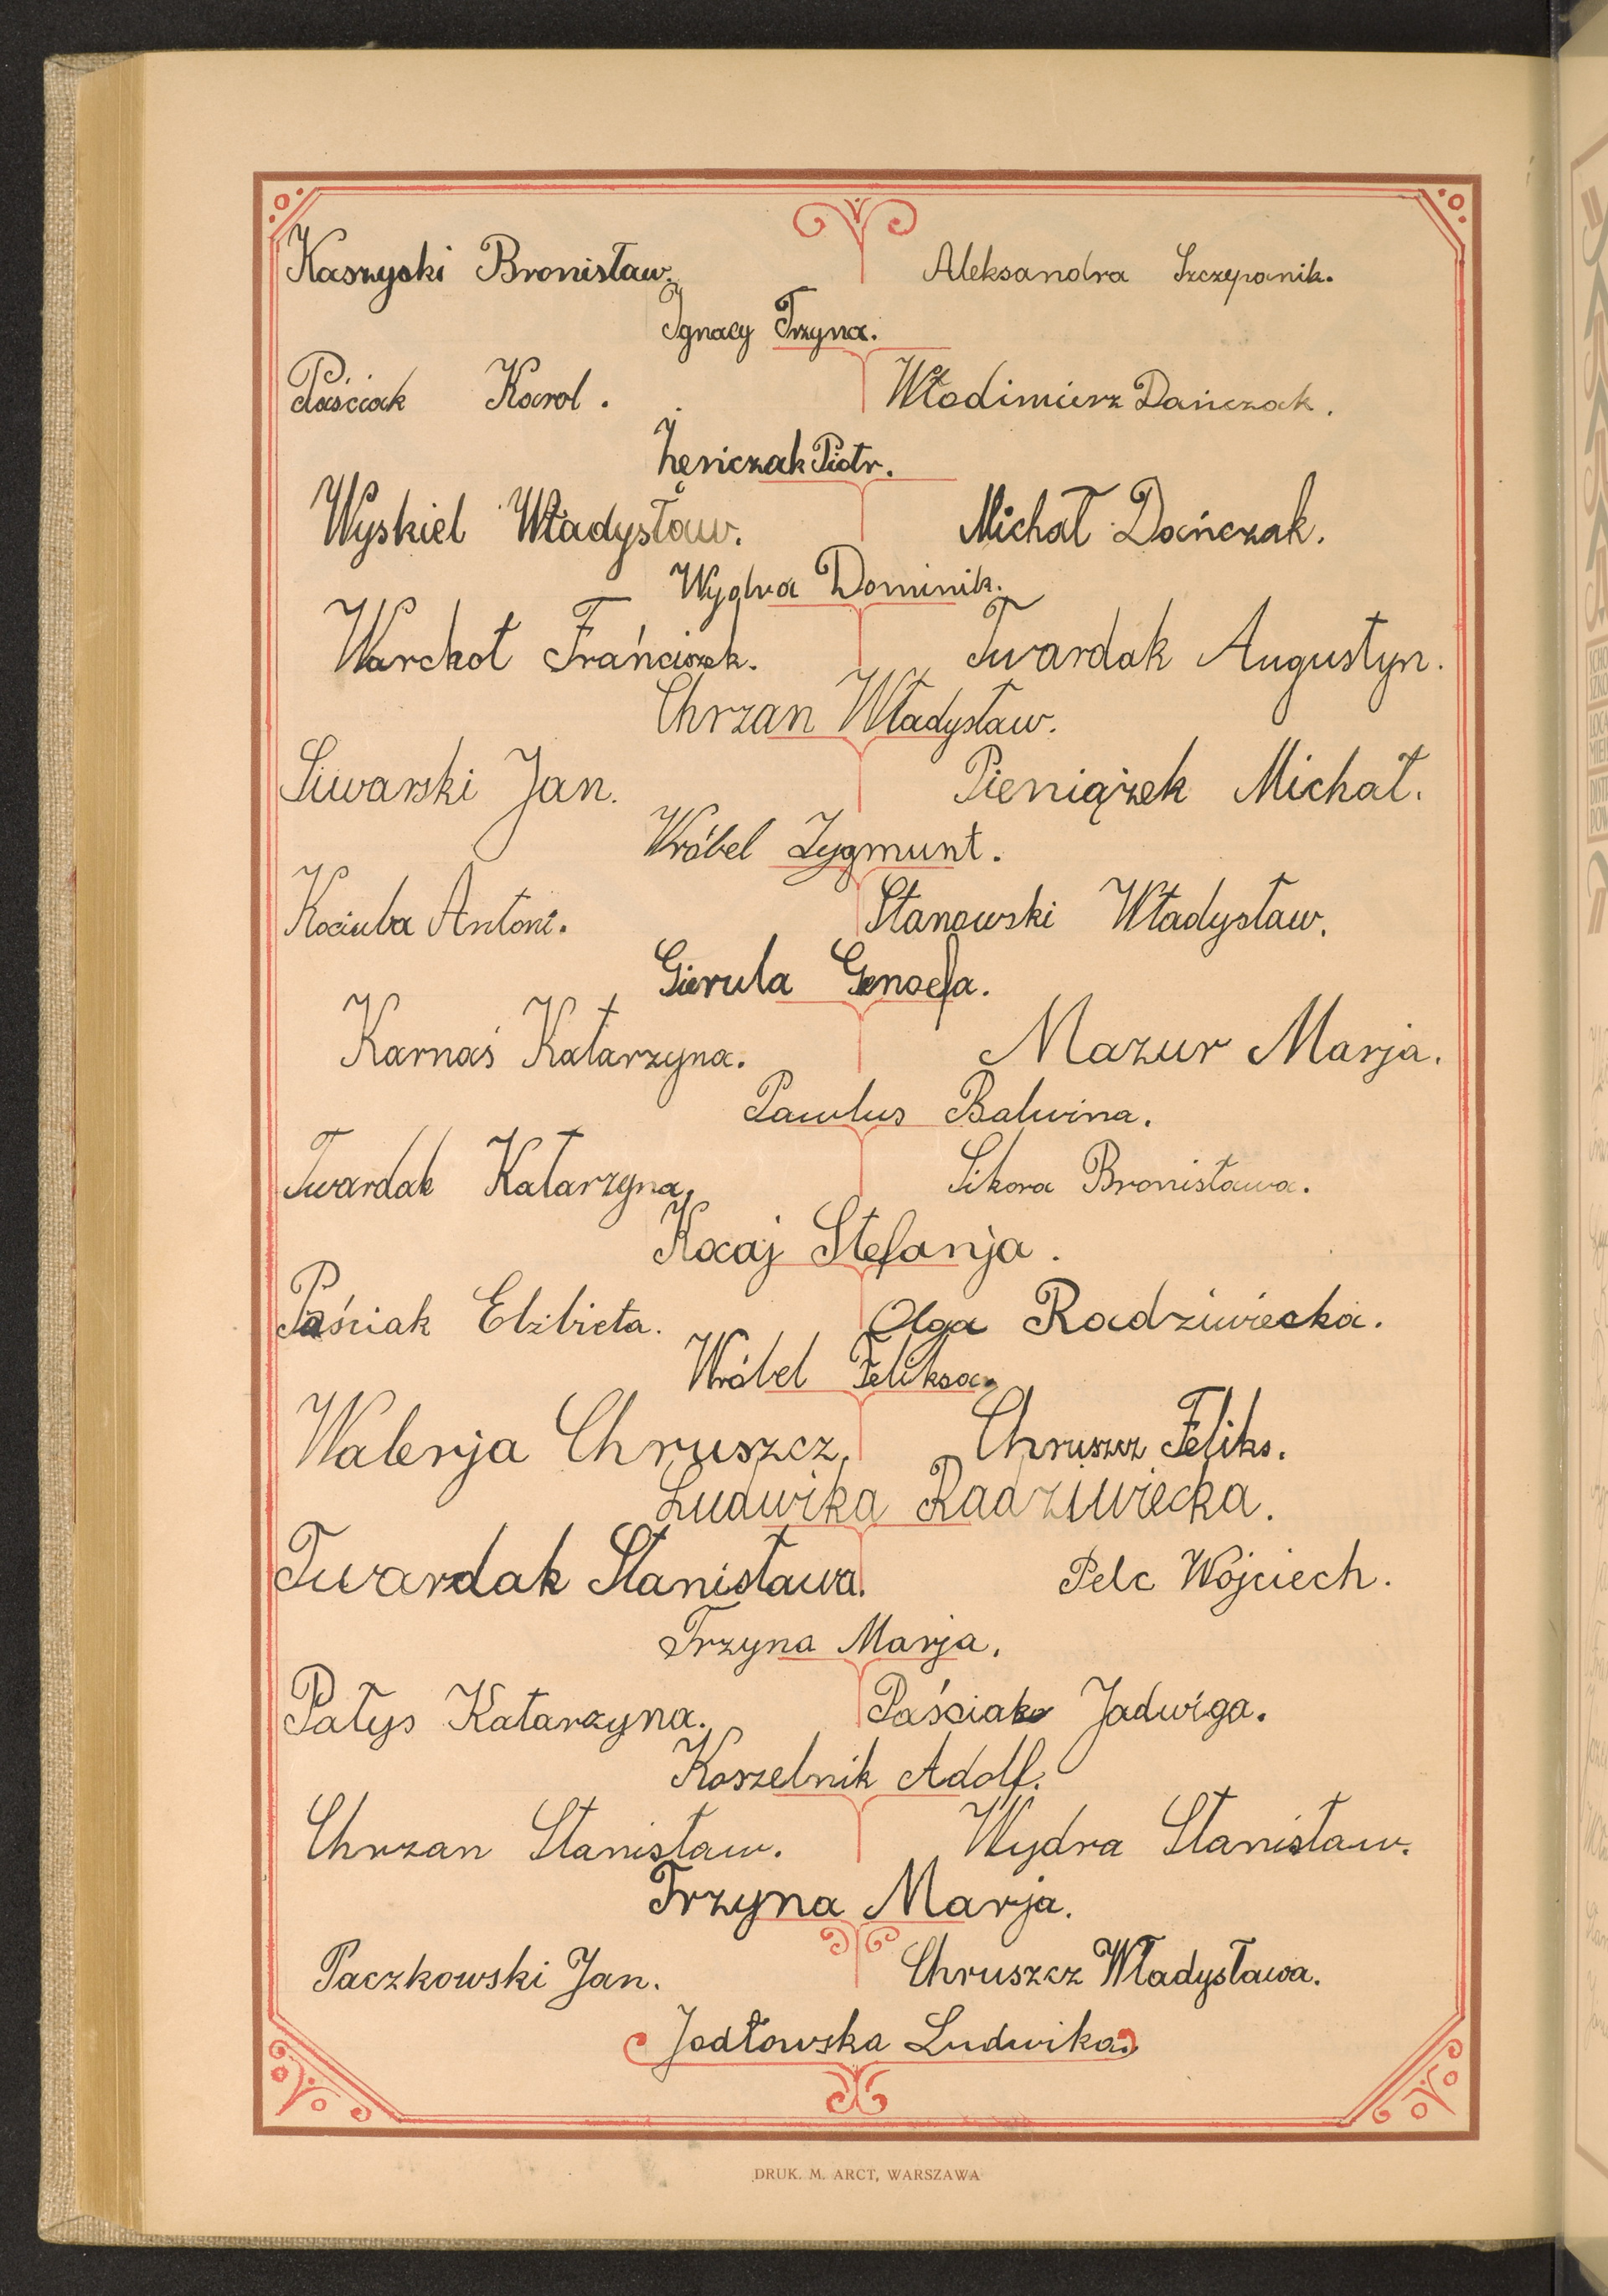 Kaszyski Bronisław. Aleksandra Szczypanik.
Ignacy Trzyna.
Paściak Karol. Włodimierz Dańczak.
Żeńczak Piotr.
Wyskiel Władysław. Michał Dańczak.
Wydra Dominik.
Warchoł Frańciszek. Twardak Augustyn.
Chrzan Władysław.
Siwarski Jan. Pieniążek Michał.
Wróbel Zygmunt.
Kociuba Antoni. Stanowski Władysław.
Gierula Genoefa.
Karnaś Katarzyna. Mazur Marja.
Pawlus Balwina.
Twardak Katarzyna. Sikora Bronisława.
Kocaj Stefanja.
Paśniak Elżbieta. Olga Radziwiecka.
Wróbel Feliksa.
Walerja Chruszcz. Chruszcz Feliks.
Ludwika Radziwiecka.
Twardak Stanisława. Pelc Wojciech.
Trzyna Marja.
Pałys Katarzyna. Paściak Jadwiga.
Koszelnik Adolf.
Chrzan Stanisław. Wydra Stanisław.
Trzyna Marja.
Paczkowski Jan. Chruszcz Władysława.
Jodłowska Ludwika.
DRUK. M. ARCT, WARSZAWA